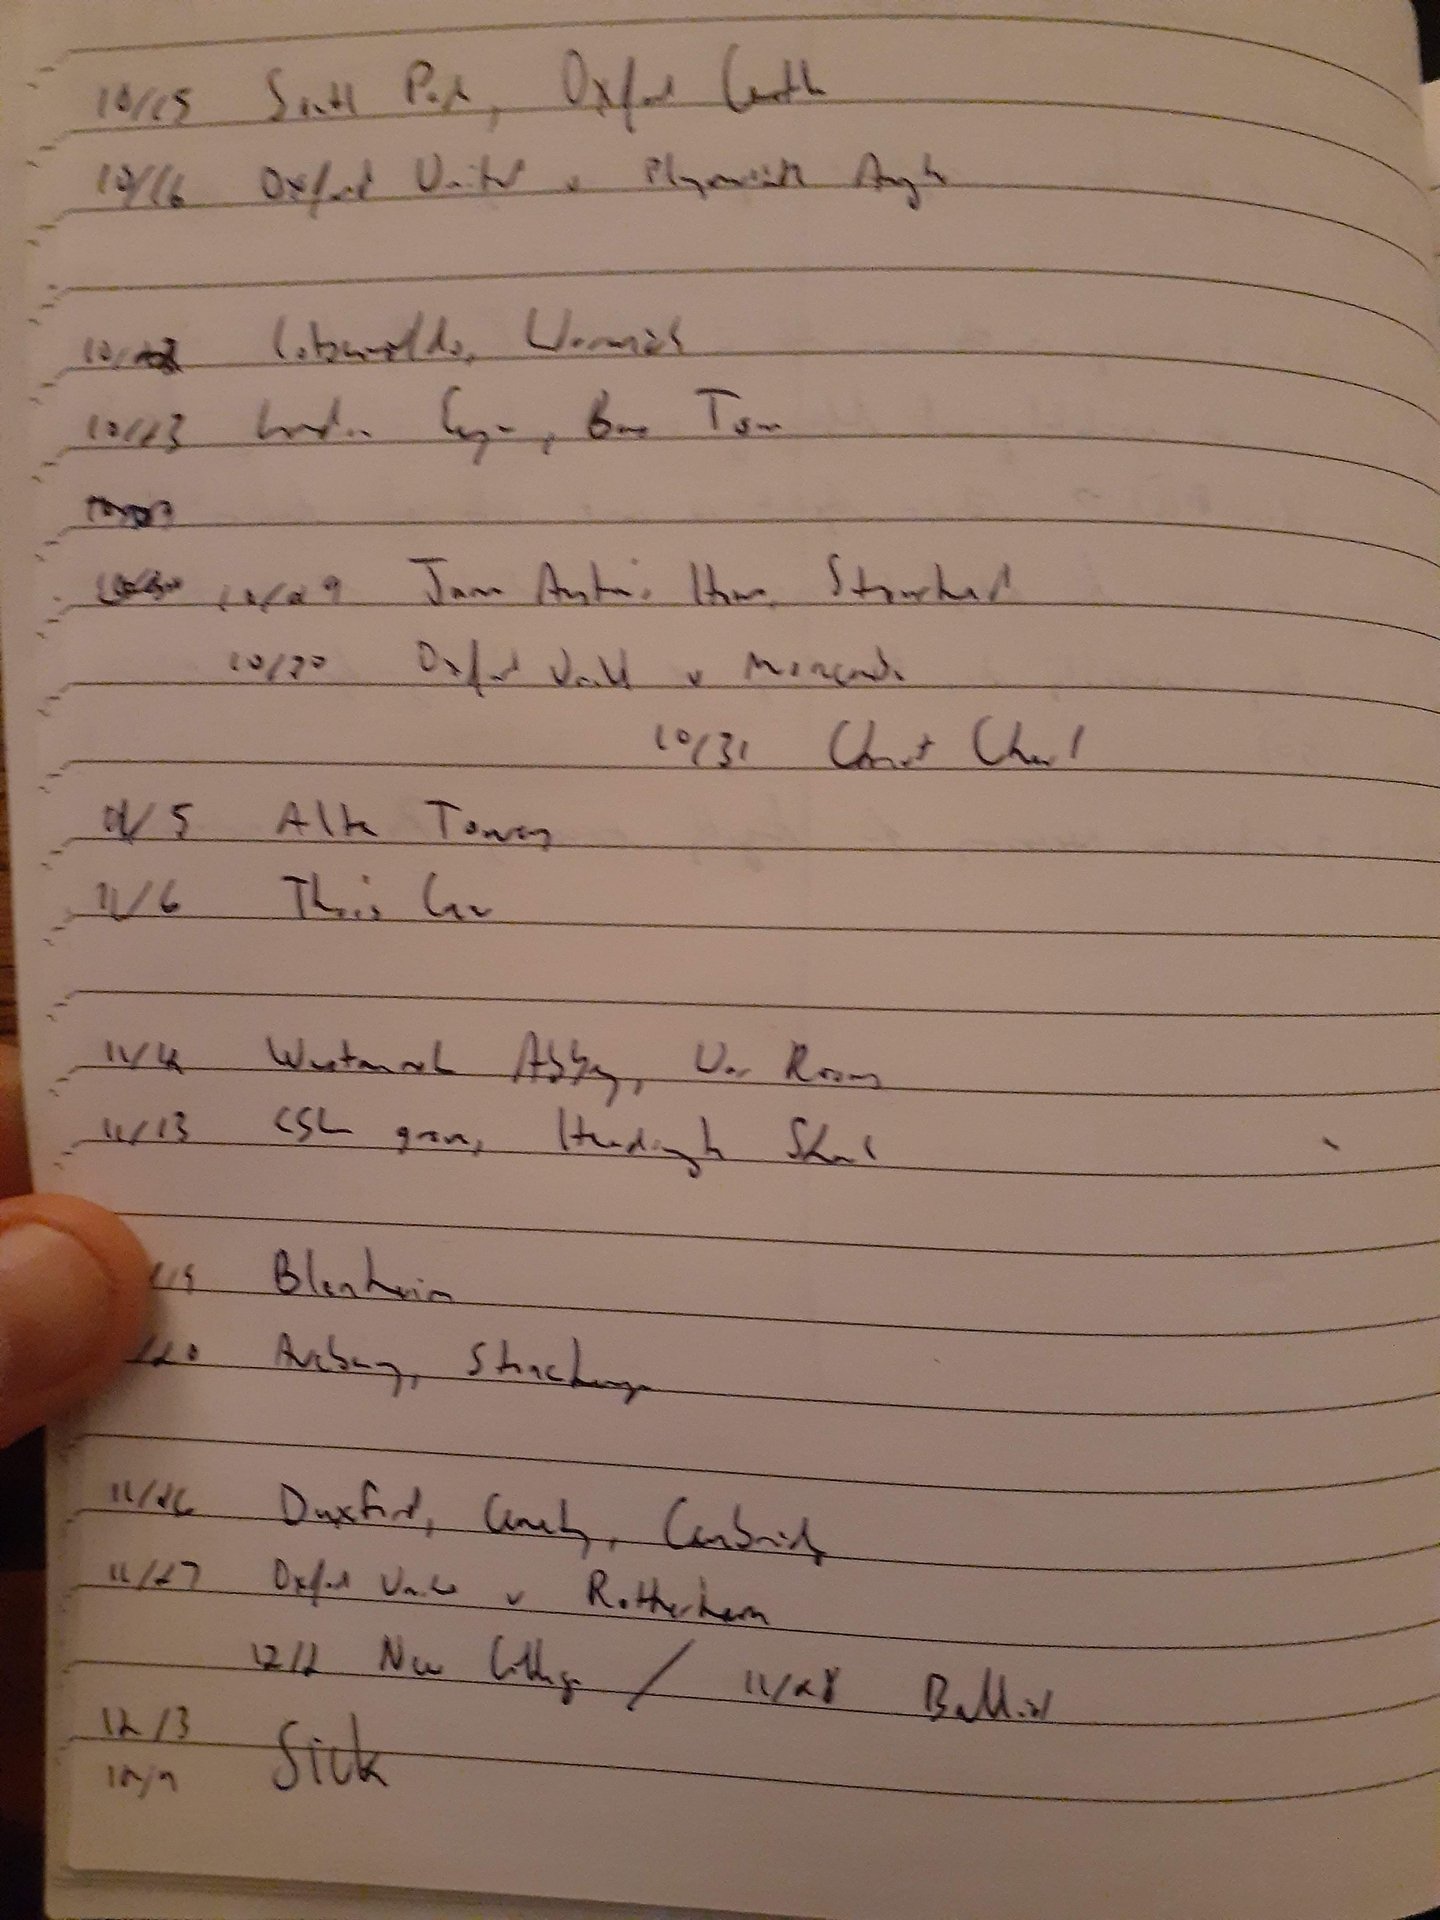 10/15 South Park, Oxford Castle
10/16 Oxford United v Plymouth Argyle
Cotswolds, Warwick
10/23 London Eye, Tom
10/29 Jane Austin House,
10/30 Oxford United v Morecambe
10/31 Christ Church
11/5 Alton Towers
11/6
11/12 Westminster Abbey, War Rooms
11/13 game, Headingly
19 Blenheim
20 Avebury, Stonehenge
11/26 Duxford, Cambridge
11/27 Oxford United v Rotherham
12/2 New College / 11/28 Balliol
12/3
Sick